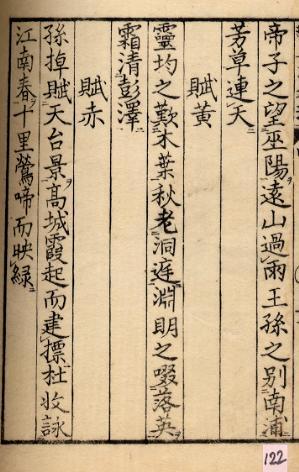 帝子之望巫陽遠山過雨王孫之別南浦
芳草連天
賦黄
靈均之歎木葉秋老洞庭淵明之啜落英
霜清彭澤
賦赤
孫掉賦天台景高城霞起而建摽杜牧詠
江南春十里鶯啼而映緑
122